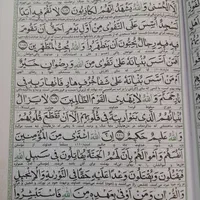 اِلَّا الْحُسْنٰى وَاللّٰهُ يَشْهَدُ اِنَّهُمْ لَكَاذِبُونَ لَا تَقُمْ فِيهِ اَبَدًا
لَمَسْجِدٌ اُسِّسَ عَلَى التَّقْوٰى مِنْ اَوَّلِ يَوْمٍ اَحَقُّ اَنْ تَقُومَ
فِيهِ فِيهِ رِجَالٌ يُحِبُّونَ اَنْ يَتَطَهَّرُوا وَاللّٰهُ يُحِبُّ الْمُطَّهِّرِينَ
اَفَمَنْ اَسَّسَ بُنْيَانَهُ عَلٰى تَقْوٰى مِنَ اللّٰهِ وَرِضْوَانٍ خَيْرٌ
اَمْ مَنْ اَسَّسَ بُنْيَانَهُ عَلٰى شَفَا جُرُفٍ هَارٍ فَانْهَارَ بِهِ فِي
نَارِ جَهَنَّمَ وَاللّٰهُ لَا يَهْدِي الْقَوْمَ الظَّالِمِينَ لَا يَزَالُ
بُنْيَانُهُمُ الَّذِي بَنَوْا رِيبَةً فِي قُلُوبِهِمْ اِلَّا اَنْ تَقَطَّعَ قُلُوبُهُمْ
وَاللّٰهُ عَلِيمٌ حَكِيمٌ اِنَّ اللّٰهَ اشْتَرٰى مِنَ الْمُؤْمِنِينَ
اَنْفُسَهُمْ وَاَمْوَالَهُمْ بِاَنَّ لَهُمُ الْجَنَّةَ يُقَاتِلُونَ فِي سَبِيلِ اللّٰهِ
فَيَقْتُلُونَ وَيُقْتَلُونَ وَعْدًا عَلَيْهِ حَقًّا فِي التَّوْرٰيةِ وَالْاِنْجِيلِ
وَالْقُرْاٰنِ وَمَنْ اَوْفٰى بِعَهْدِهِ مِنَ اللّٰهِ فَاسْتَبْشِرُوا